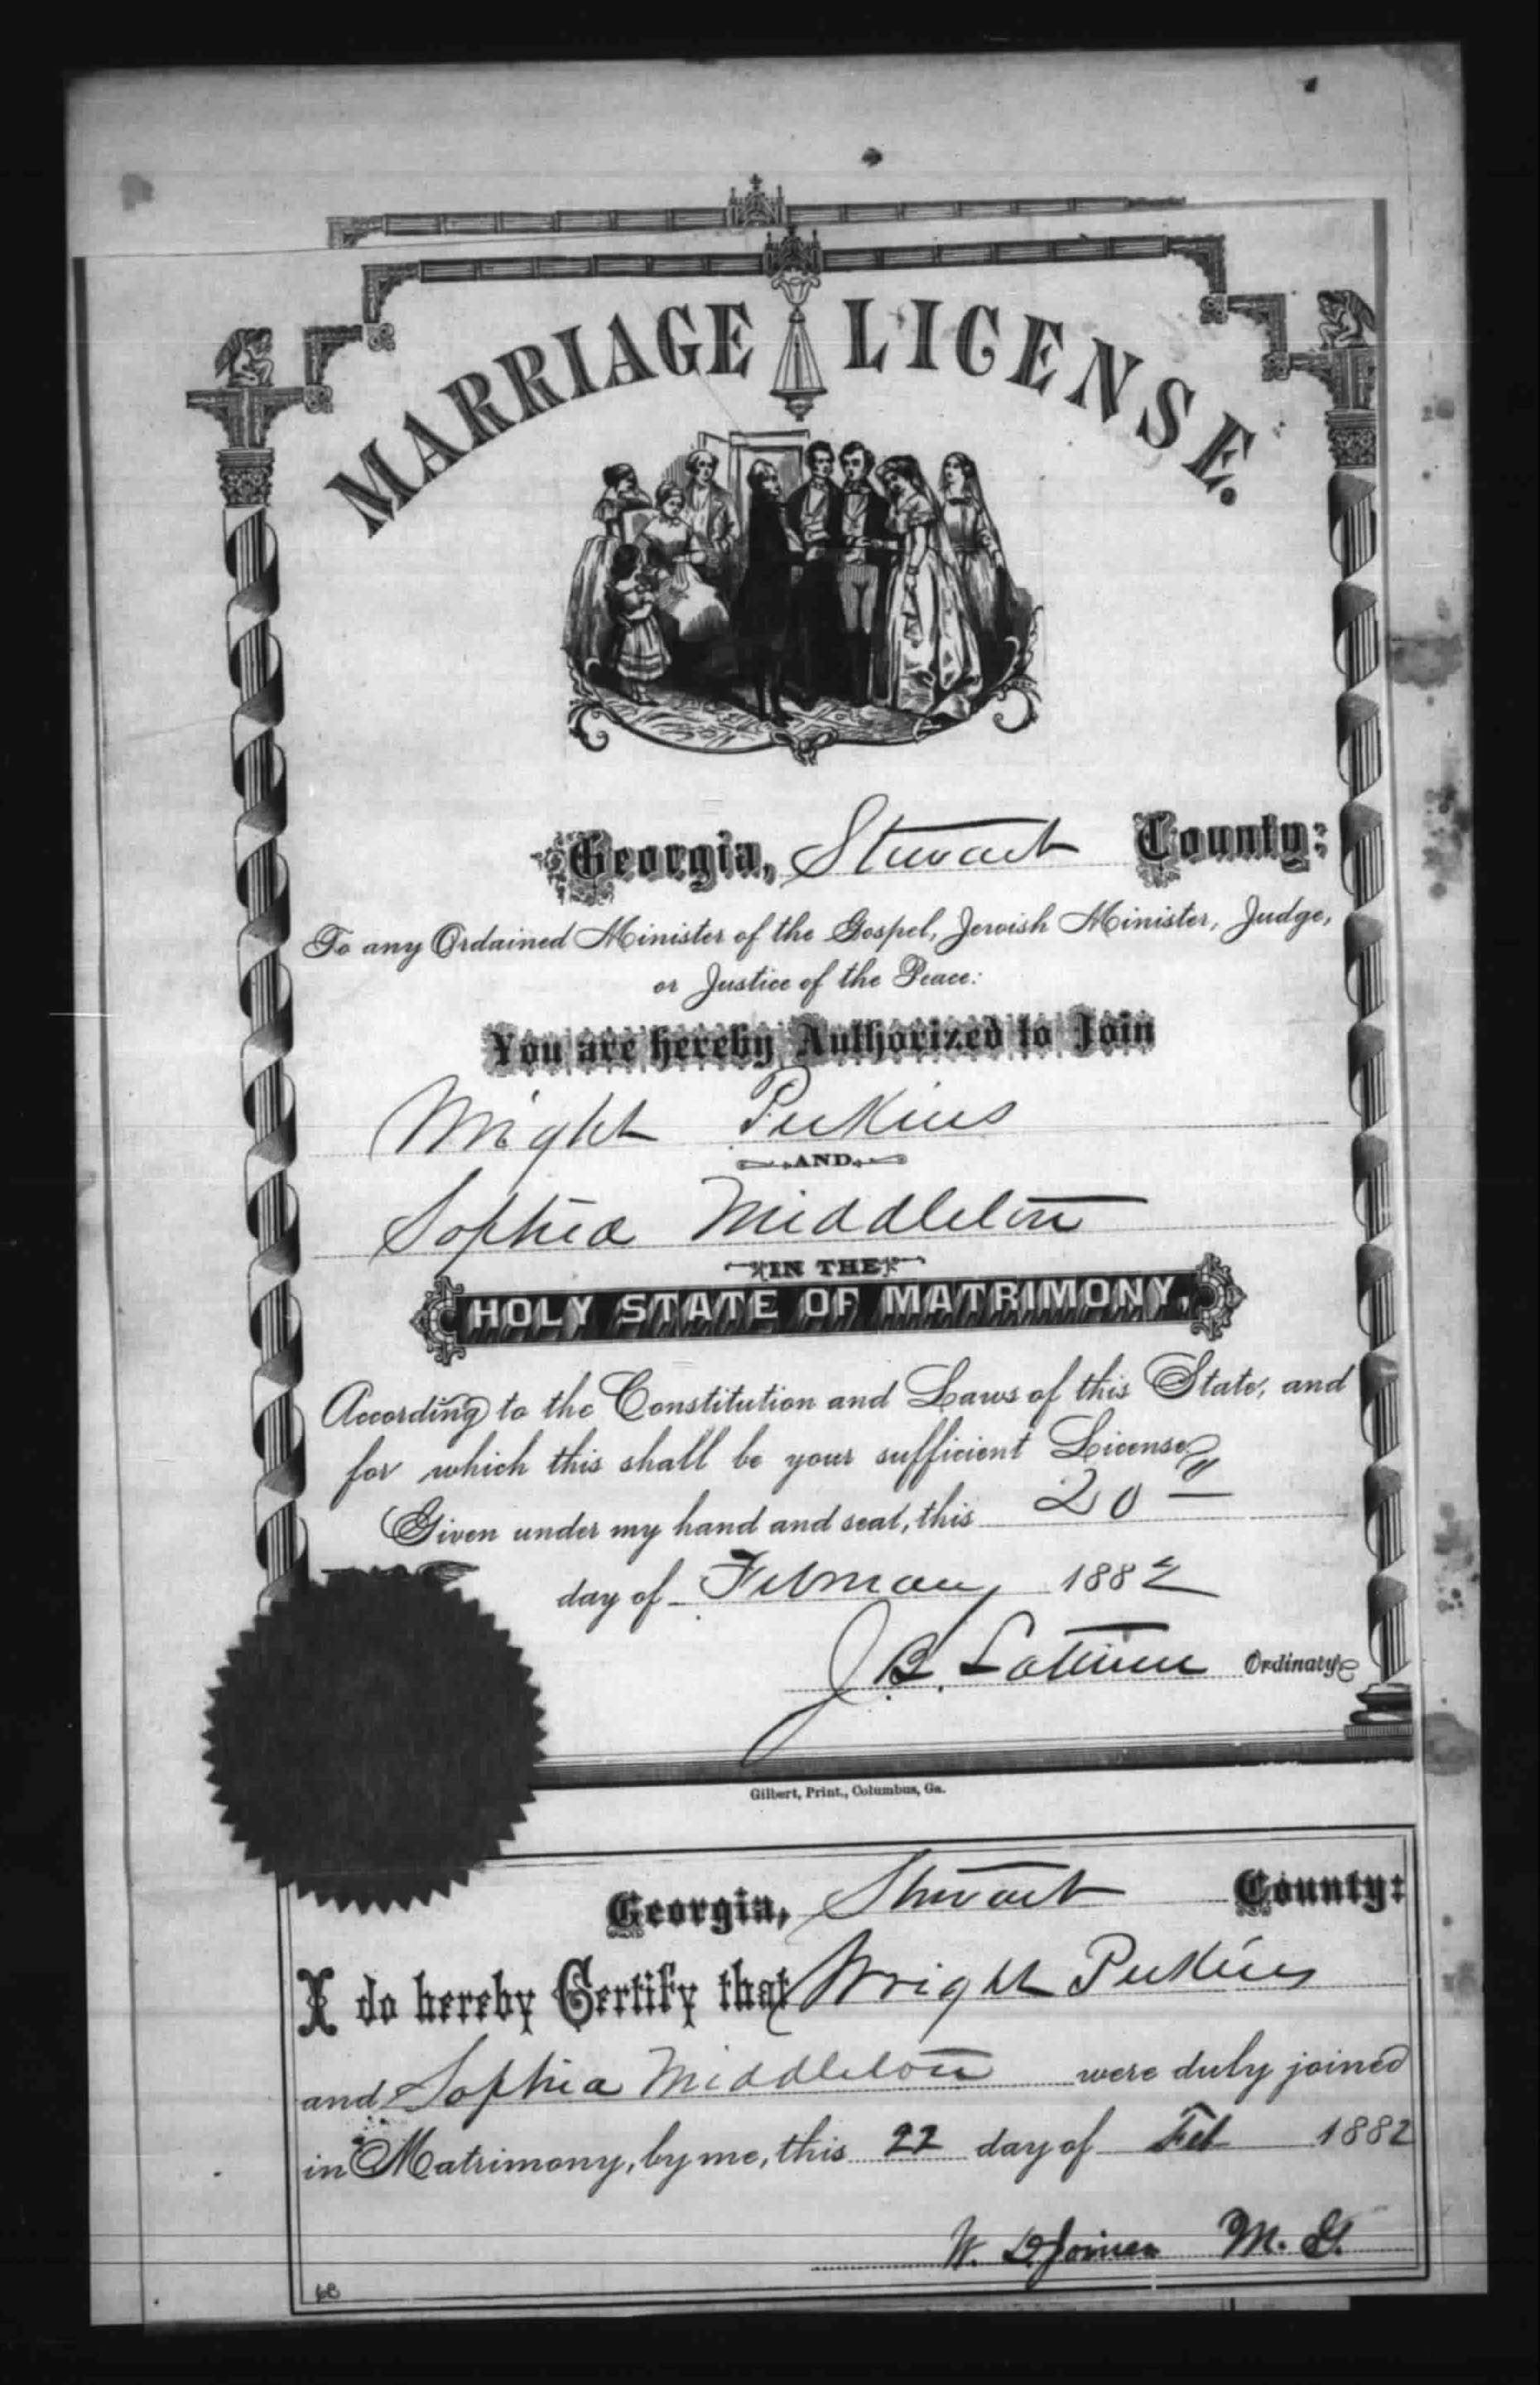 MARRIAGE LICENSE.
Georgia, Stewart County:
To any Ordained Minister of the Gospel, Jewish Minister, Judge,
or Justice of the Peace:
You are hereby Authorized to Join
Wright Perkins
AND
Sophia Middleton
IN THE
HOLY STATE OF MATRIMONY,
According to the Constitution and Laws of this State, and
for which this shall be your sufficient License
Given under my hand and seal, this 20"
day of February 1882
J. B. Latimer Ordinary
Gilbert, Print., Columbus, Ga.
Georgia, Stewart County:
I do hereby Certify that Wright Perkins
and Sophia Middleton were duly joined
in Matrimony, by me, this 22 day of Feb 1882
W. D. Joiner M. G.
68